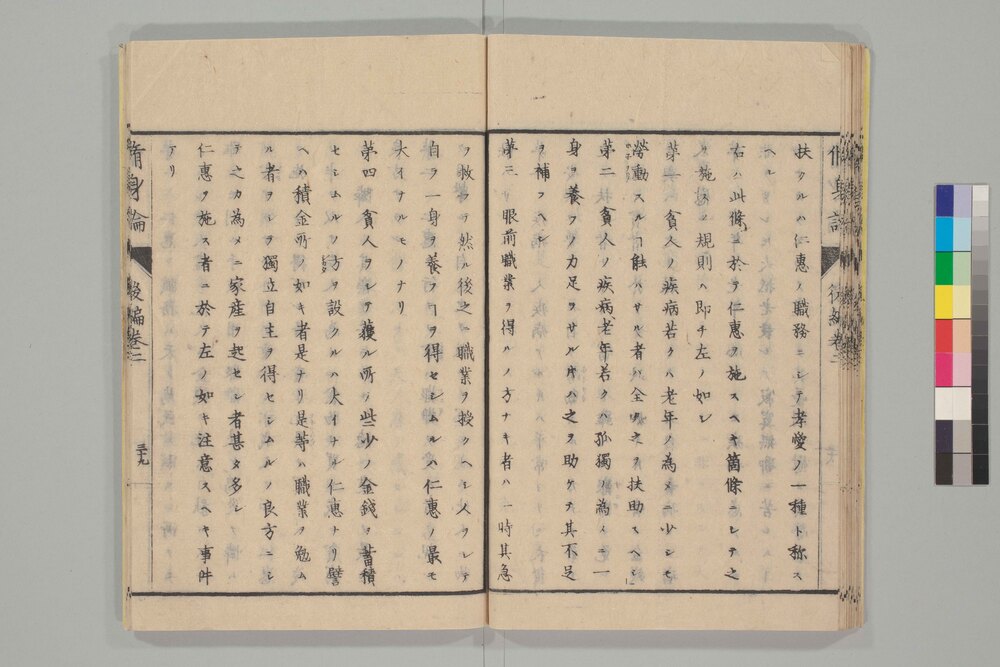 扶クルハ仁惠ノ職務ニシテ孝愛ノ一種ト称ス
ヘシ
右ハ此條ニ於テ仁惠ヲ施スヘキ箇條ニシテ之
ヲ施スノ規則ハ即チ左ノ如シ
第一 貧人ノ疾病若クハ老年ノ為メニ少シモ
勞動スルヿ能ハサル者ハ全ク之ヲ扶助スヘシ
第二 貧人ノ疾病老年若クハ孤獨ノ為メニ一
身ヲ養フノ力足ラサル𪜈ハ之ヲ助ケテ其不足
ヲ補フヘシ
第三 眼前職業ヲ得ルノ方ナキ者ハ一時其急
ヲ救フテ然ル後之ニ職業ヲ授クヘシ人ヲシテ
自ラ一身ヲ養フヿヲ得セシムルハ仁惠ノ最モ
大イナルモノナリ
第四 貧人ヲシテ獲ル所ノ些少ノ金錢ヲ蓄積
セシムルノ方ヲ設クルハ大イナル仁惠ナリ譬
ヘハ積金所ノ如キ者是ナリ是等ハ職業ヲ勉ム
ル者ヲシテ獨立自主ヲ得セシムルノ良方ニシ
テ之カ為メニ家産ヲ起セシ者甚タ多シ
仁惠ヲ施ス者ニ於テ左ノ如キ注意スヘキ事件
アリ
脩身論
後編卷二
三十九